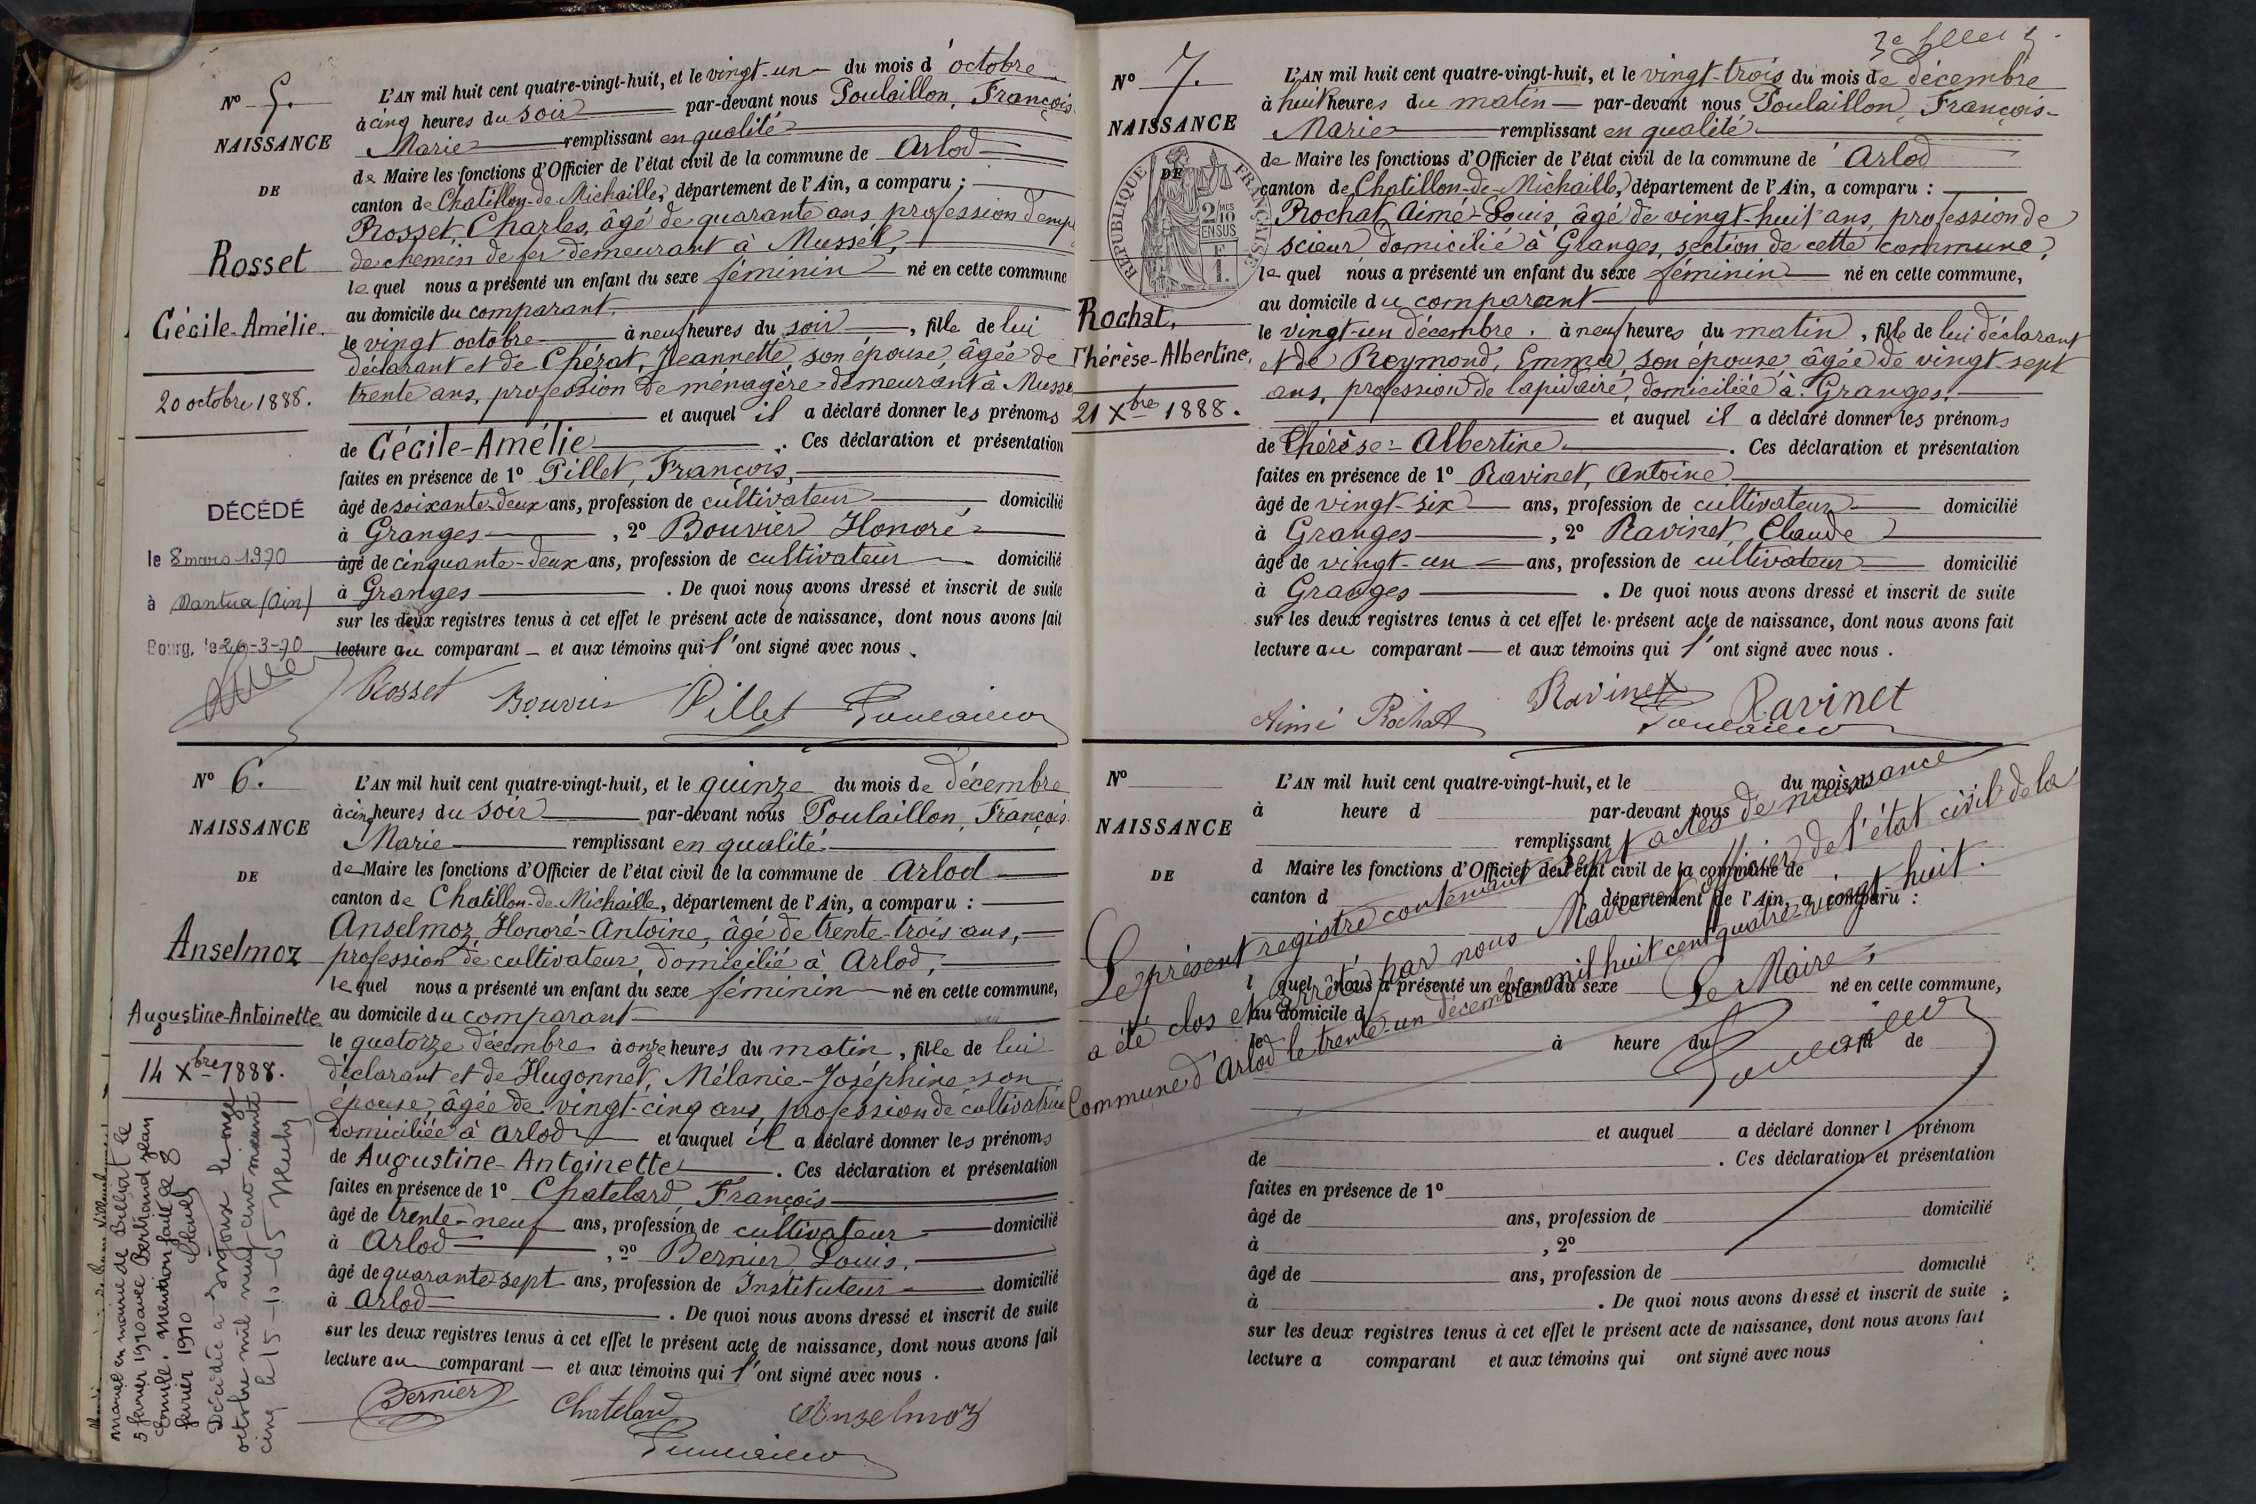 N° 5.
NAISSANCE
DE
Rosset
Cécile-Amélie.
20 octobre 1888.
DÉCÉDÉ
le 8 mars 1970
à Nantua (Ain)
Bourg, le 26-3-70
L'AN mil huit cent quatre-vingt-huit, et le vingt-un du mois d'octobre
à cinq heures du soir par-devant nous Poulaillon, François
Marie remplissant en qualité
de Maire les fonctions d'Officier de l'état civil de la commune de Arlod
canton de Chatillon-de-Michaille, département de l'Ain, a comparu :
Rosset, Charles, âgé de quarante ans, profession d'emp
de chemin de fer demeurant à Mussel,
lequel nous a présenté un enfant du sexe féminin né en cette commune
au domicile du comparant
le vingt octobre à neuf heures du soir, fille de lui
déclarant et de Chézat, Jeannette son épouse âgée de
trente ans, profession de ménagère demeurant à Musse
et auquel il a déclaré donner les prénoms
de Cécile-Amélie. Ces déclaration et présentation
faites en présence de 1° Pillet, François,
âgé de soixante-deux ans, profession de cultivateur domicilié
à Granges, 2° Bouvier Honoré
âgé de cinquante-deux ans, profession de cultivateur domicilié
à Granges. De quoi nous avons dressé et inscrit de suite
sur les deux registres tenus à cet effet le présent acte de naissance, dont nous avons fait
lecture au comparant et aux témoins qui l'ont signé avec nous.
Rosset Bouvier Pillet Poulaillon
N° 6.
NAISSANCE
DE
Anselmoz
Augustine-Antoinette
14 Xbre 1888.
mariée en mairie de Billiat le
5 février 1910 avec Bertrand Jean
Emile. Mention faite le 8
février 1910
Décédée à Injoux le onze
octobre mil neuf cent soixante
cinq le 15-10-65
L'AN mil huit cent quatre-vingt-huit, et le quinze du mois de décembre
à cinq heures du soir par-devant nous Poulaillon, François
Marie remplissant en qualité
de Maire les fonctions d'Officier de l'état civil de la commune de Arlod
canton de Chatillon-de-Michaille, département de l'Ain, a comparu :
Anselmoz, Honoré-Antoine, âgé de trente-trois ans,
profession de cultivateur, domicilié à Arlod,
lequel nous a présenté un enfant du sexe féminin né en cette commune,
au domicile du comparant
le quatorze décembre à onze heures du matin, fille de lui
déclarant et de Hugonnet, Mélanie-Joséphine son
épouse, âgée de vingt-cinq ans, profession de cultivatrice
domiciliée à Arlod et auquel il a déclaré donner les prénoms
de Augustine-Antoinette. Ces déclaration et présentation
faites en présence de 1° Chatelard François
âgé de trente-neuf ans, profession de cultivateur domicilié
à Arlod, 2° Bernier Louis,
âgé de quarante-sept ans, profession de Instituteur domicilié
à Arlod. De quoi nous avons dressé et inscrit de suite
sur les deux registres tenus à cet effet le présent acte de naissance, dont nous avons fait
lecture au comparant et aux témoins qui l'ont signé avec nous.
Bernier Chatelard Anselmoz
Poulaillon
N° 7.
NAISSANCE
DE
RÉPUBLIQUE FRANÇAISE
2/10 EN SUS
F 1.
Rochat,
Thérèse-Albertine,
21 Xbre 1888.
L'AN mil huit cent quatre-vingt-huit, et le vingt-trois du mois de décembre
à huit heures du matin par-devant nous Poulaillon, François-
Marie remplissant en qualité
de Maire les fonctions d'Officier de l'état civil de la commune de Arlod
canton de Chatillon-de-Michaille, département de l'Ain, a comparu :
Rochat, Aimé-Louis, âgé de vingt-huit ans, profession de
scieur, domicilié à Granges, section de cette commune,
lequel nous a présenté un enfant du sexe féminin né en cette commune,
au domicile du comparant
le vingt-un décembre, à neuf heures du matin, fille de lui déclarant
et de Reymond, Emma, son épouse, âgée de vingt-sept
ans, profession de lapidaire, domiciliée à Granges,
et auquel il a déclaré donner les prénoms
de Thérèse-Albertine. Ces déclaration et présentation
faites en présence de 1° Ravinet, Antoine
âgé de vingt-six ans, profession de cultivateur domicilié
à Granges, 2° Ravinet, Claude
âgé de vingt-un ans, profession de cultivateur domicilié
à Granges. De quoi nous avons dressé et inscrit de suite
sur les deux registres tenus à cet effet le présent acte de naissance, dont nous avons fait
lecture au comparant et aux témoins qui l'ont signé avec nous.
Aimé Rochat Ravinet Ravinet
Poulaillon
N°
NAISSANCE
DE
L'AN mil huit cent quatre-vingt-huit, et le du mois d
à heure d par-devant nous
remplissant
d Maire les fonctions d'Officier de l'état civil de la commune de
canton d département de l'Ain, a comparu :
l quel nous a présenté un enfant du sexe né en cette commune,
au domicile d
le à heure du fil de
et auquel a déclaré donner l prénom
de . Ces déclaration et présentation
faites en présence de 1°
âgé de ans, profession de domicilié
à , 2°
âgé de ans, profession de domicilié
à . De quoi nous avons dressé et inscrit de suite
sur les deux registres tenus à cet effet le présent acte de naissance, dont nous avons fait
lecture a comparant et aux témoins qui ont signé avec nous
Le présent registre contenant sept actes de naissance
a été clos et arrêté par nous Maire et officier de l'état civil de la
Commune d'Arlod le trente-un décembre mil huit cent quatre-vingt huit.
Le Maire,
Poulaillon